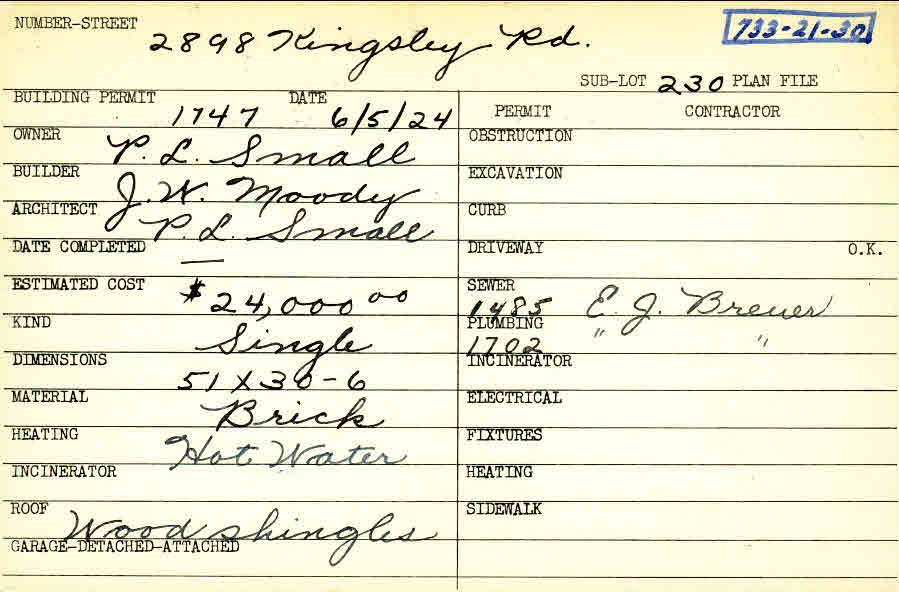 NUMBER-STREET 2898 Kingsley Rd. 733-21-30
SUB-LOT 230 PLAN FILE
BUILDING PERMIT 1747 DATE 6/5/24 PERMIT CONTRACTOR
OWNER P. L. Small OBSTRUCTION
BUILDER J. W. Moody EXCAVATION
ARCHITECT P. L. Small CURB
DATE COMPLETED — DRIVEWAY O.K.
ESTIMATED COST $24,000 00 SEWER 1485 E. J. Brewer
KIND Single PLUMBING 1702 " "
DIMENSIONS 51 X 30-6 INCINERATOR
MATERIAL Brick ELECTRICAL
HEATING Hot Water FIXTURES
INCINERATOR HEATING
ROOF Wood shingles SIDEWALK
GARAGE-DETACHED-ATTACHED